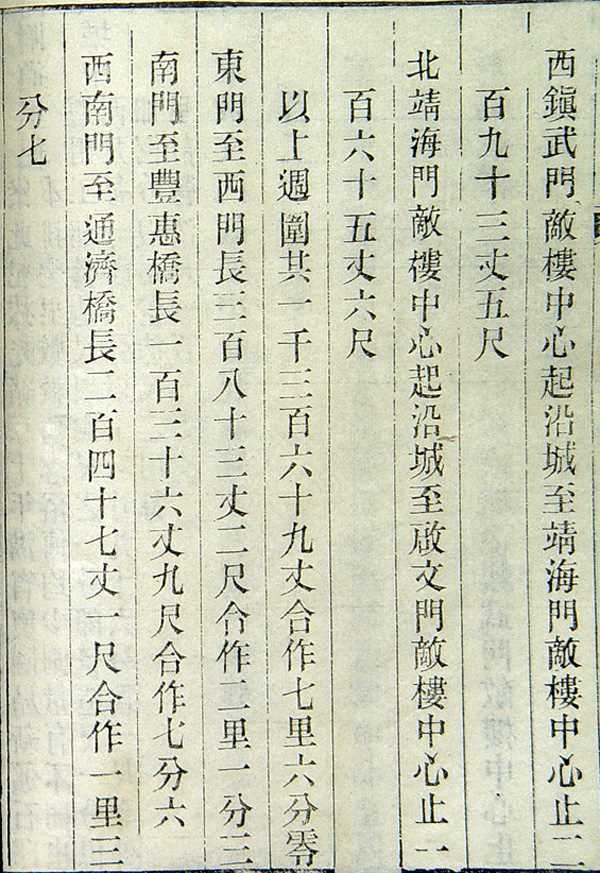 西鎭武門敵樓中心起沿城至靖海門敵樓中心止二
百九十三丈五尺
北靖海門敵樓中心起沿城至啟文門敵樓中心止一
百六十五丈六尺
以上週圍共一千三百六十九丈合作七里六分零
東門至西門長三百八十三丈二尺合作二里一分三
南門至豐惠橋長一百三十六丈九尺合作七分六
西南門至通濟橋長二百四十七丈一尺合作一里三
分七